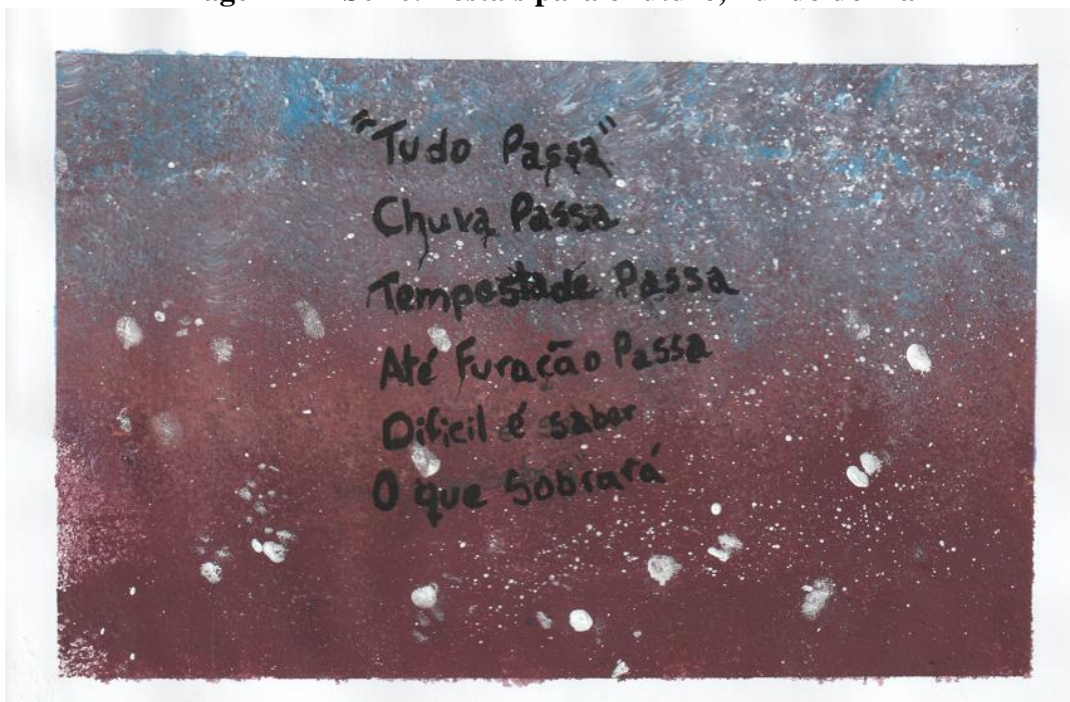 "Tudo Passa"
Chuva Passa
Tempestade Passa
Até Furacão Passa
Dificil é saber
O que Sobrará